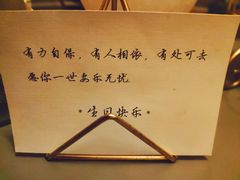 有力自保，有人相依，有处可去
愿你一世安乐无忧
*生日快乐*